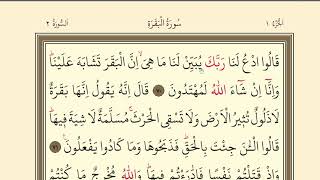 الجزء ١ سورة البقرة السورة ٢
قَالُوا ادْعُ لَنَا رَبَّكَ يُبَيِّنْ لَنَا مَا هِيَ إِنَّ الْبَقَرَ تَشَابَهَ عَلَيْنَا
وَإِنَّا إِنْ شَاءَ اللهُ لَمُهْتَدُونَ ٧٠ قَالَ إِنَّهُ يَقُولُ إِنَّهَا بَقَرَةٌ
لَا ذَلُولٌ تُثِيرُ الْأَرْضَ وَلَا تَسْقِي الْحَرْثَ مُسَلَّمَةٌ لَا شِيَةَ فِيهَا
قَالُوا الْآنَ جِئْتَ بِالْحَقِّ فَذَبَحُوهَا وَمَا كَادُوا يَفْعَلُونَ ٧١
وَإِذْ قَتَلْتُمْ نَفْسًا فَادَّارَأْتُمْ فِيهَا وَاللهُ مُخْرِجٌ مَا كُنْتُمْ